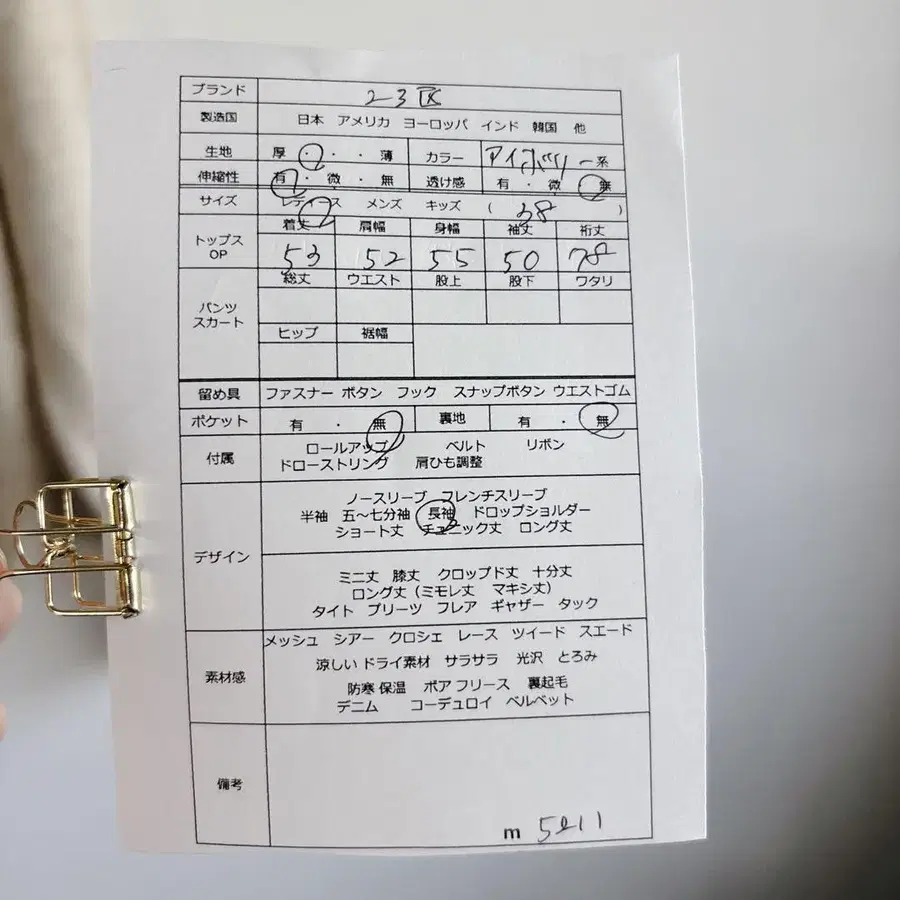 ブランド 23区
製造国 日本 アメリカ ヨーロッパ インド 韓国 他
生地 厚・・・薄 カラー アイボリー系
伸縮性 有・微・無 透け感 有・微・無
サイズ レディース メンズ キッズ ( 38 )
トップス OP 着丈 肩幅 身幅 袖丈 裄丈
53 52 55 50 78
パンツ スカート 総丈 ウエスト 股上 股下 ワタリ
ヒップ 裾幅
留め具 ファスナー ボタン フック スナップボタン ウエストゴム
ポケット 有・無 裏地 有・無
付属 ロールアップ ベルト リボン
ドローストリング 肩ひも調整
デザイン ノースリーブ フレンチスリーブ
半袖 五～七分袖 長袖 ドロップショルダー
ショート丈 チュニック丈 ロング丈
ミニ丈 膝丈 クロップド丈 十分丈
ロング丈（ミモレ丈 マキシ丈）
タイト プリーツ フレア ギャザー タック
素材感 メッシュ シアー クロシェ レース ツイード スエード
涼しい ドライ素材 サラサラ 光沢 とろみ
防寒 保温 ボア フリース 裏起毛
デニム コーデュロイ ベルベット
備考
m